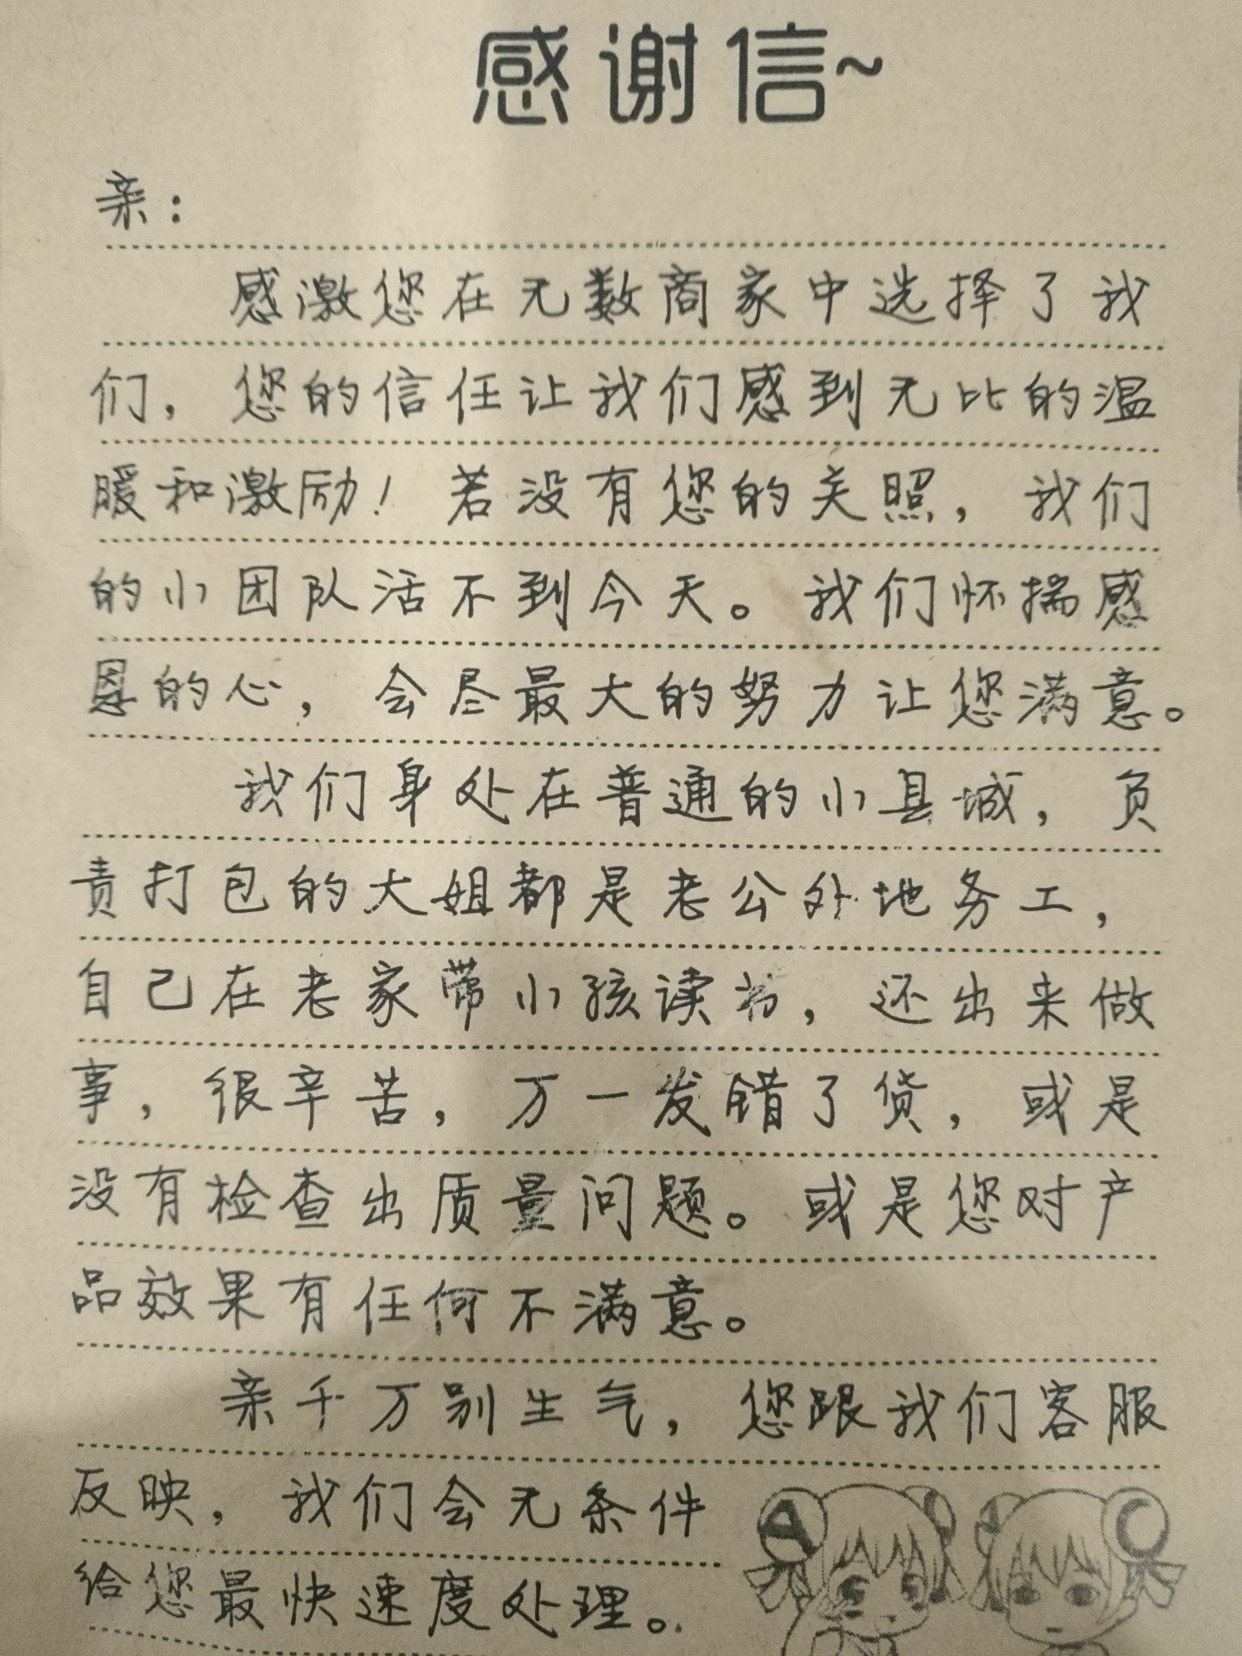 感谢信~
亲：
感激您在无数商家中选择了我
们，您的信任让我们感到无比的温
暖和激励！若没有您的关照，我们
的小团队活不到今天。我们怀揣感
恩的心，会尽最大的努力让您满意。
我们身处在普通的小县城，负
责打包的大姐都是老公外地务工，
自己在老家带小孩读书，还出来做
事，很辛苦，万一发错了货，或是
没有检查出质量问题。或是您对产
品效果有任何不满意。
亲千万别生气，您跟我们客服
反映，我们会无条件
给您最快速度处理。